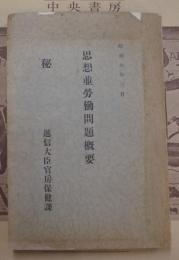 中央書房
昭和九年三月
思想並労働問題概要
秘
逓信大臣官房保健課